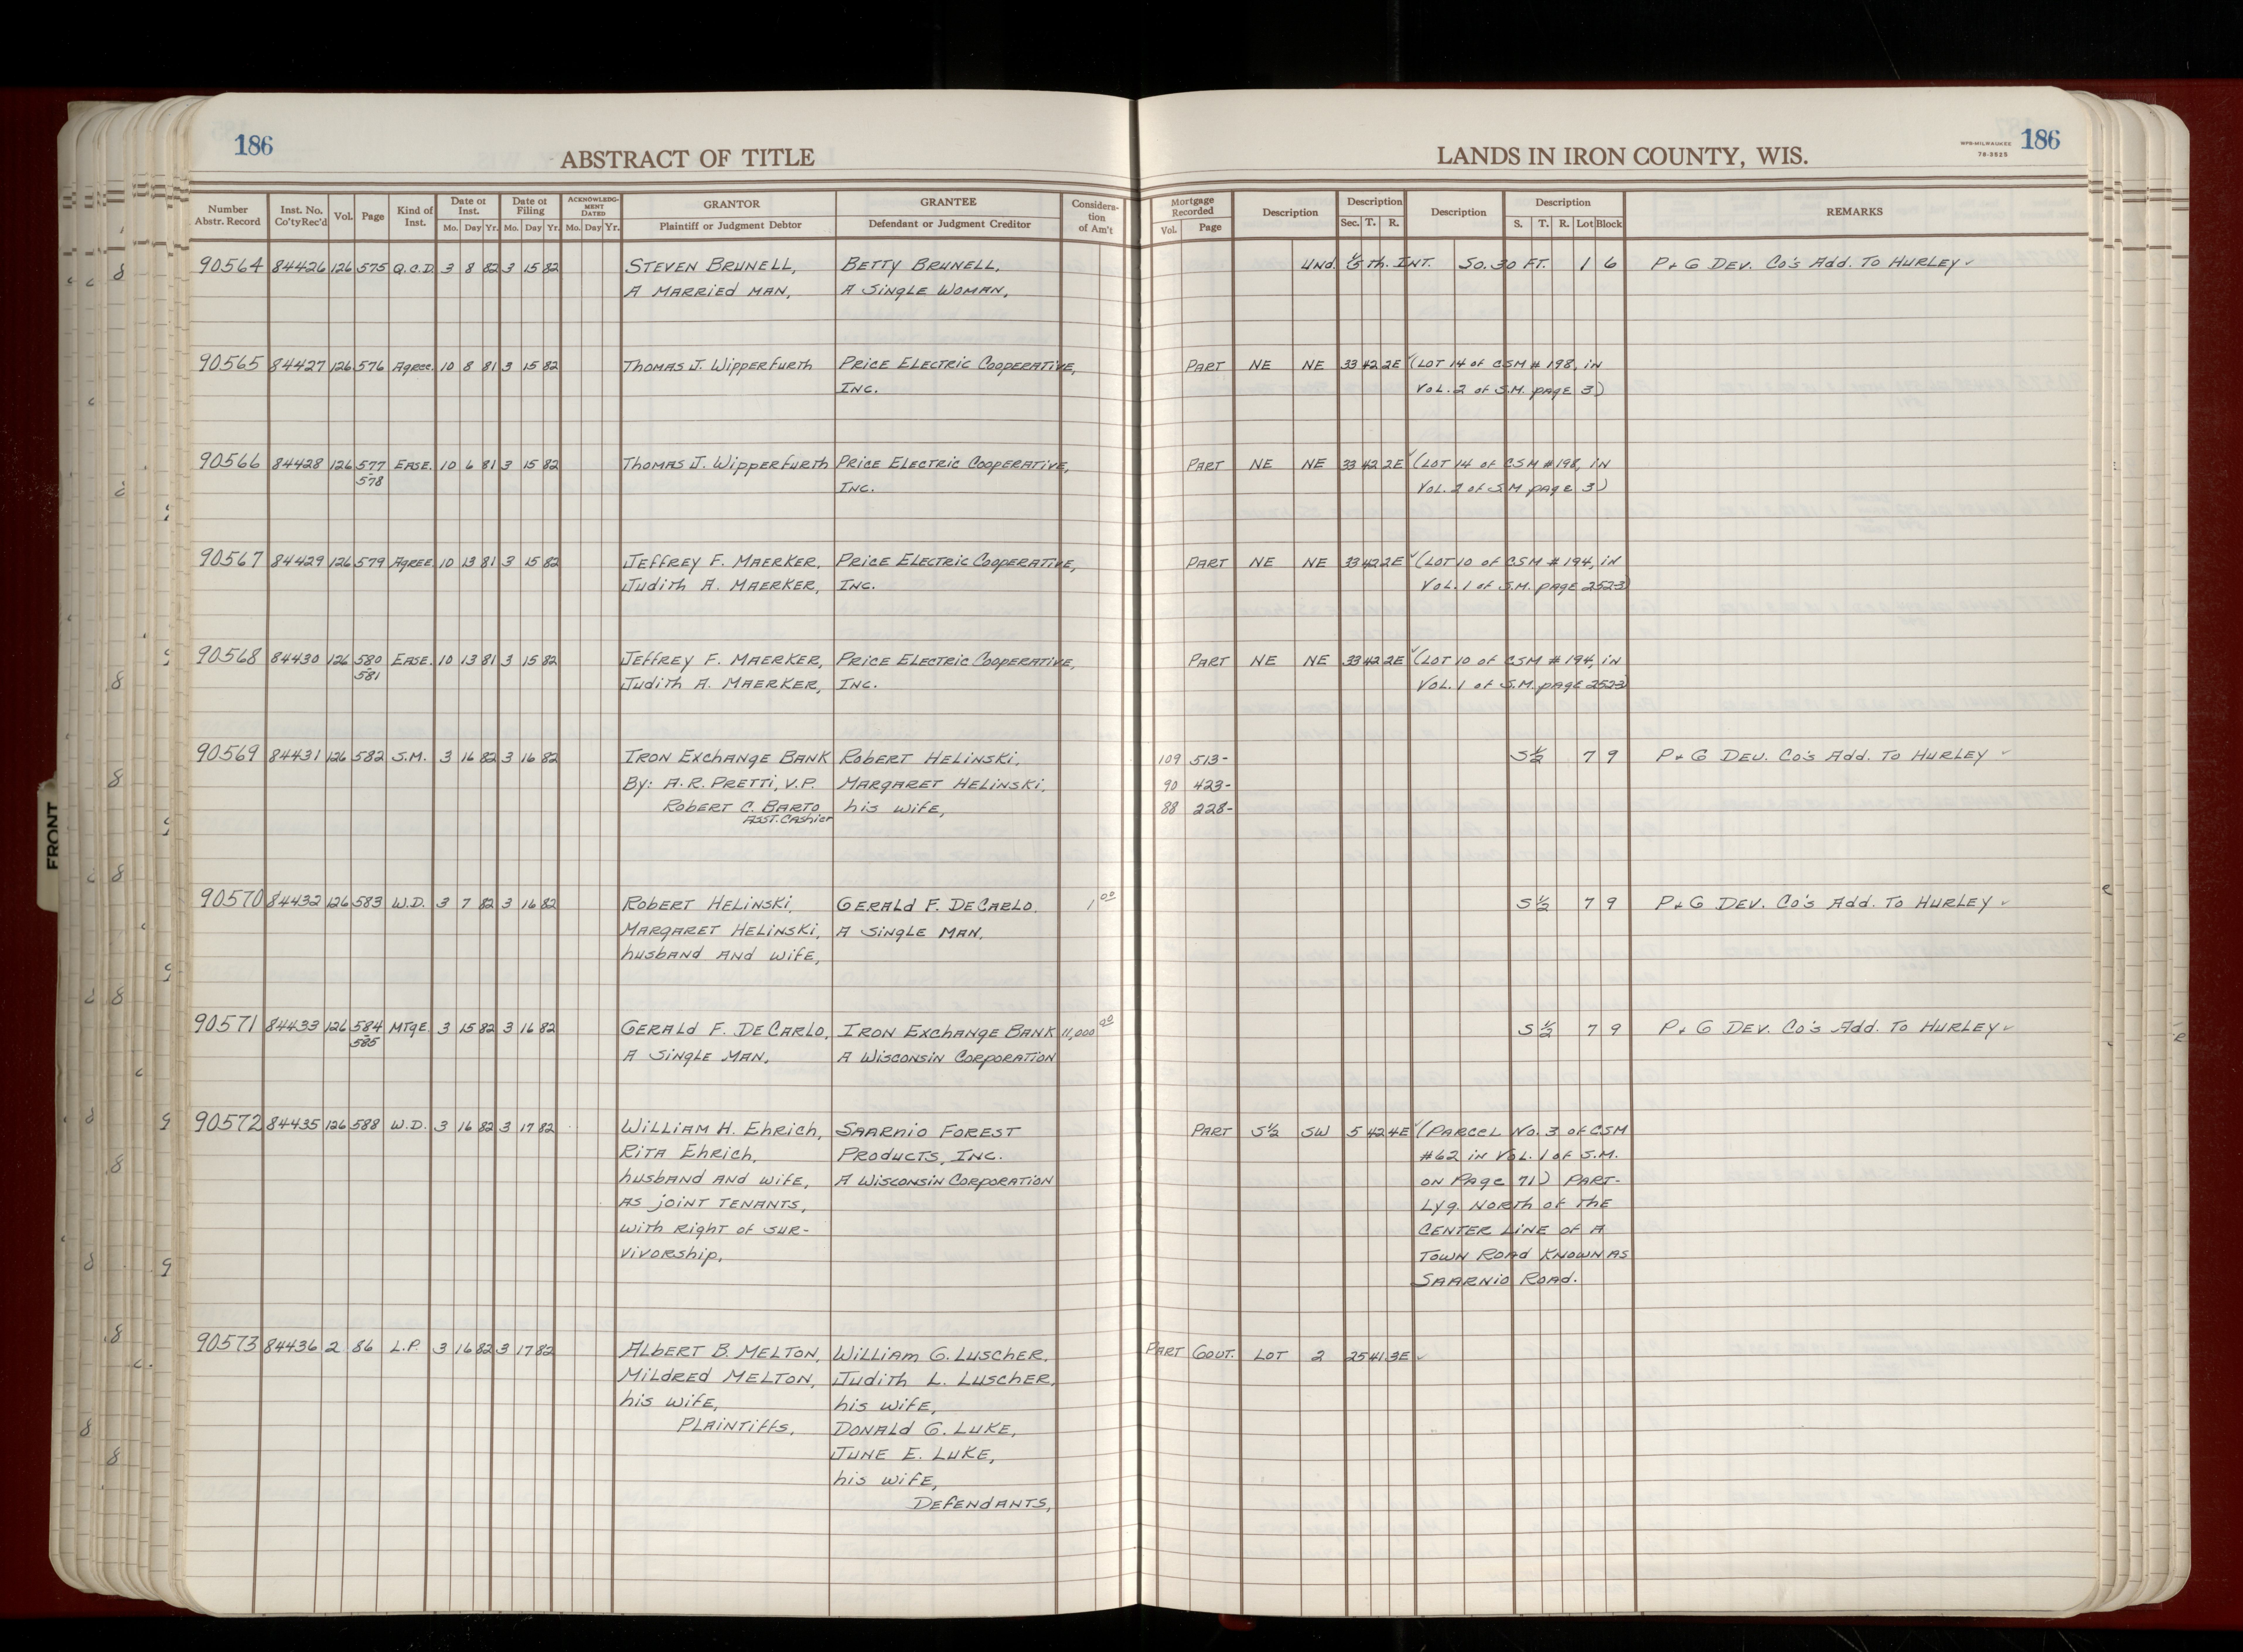 186
ABSTRACT OF TITLE
LANDS IN IRON COUNTY, WIS.
WPB-MILWAUKEE
78-3525
186
Number Abstr. Record | Inst. No. Co'ty Rec'd | Vol. | Page | Kind of Inst. | Date of Inst. Mo. Day Yr. | Date of Filing Mo. Day Yr. | ACKNOWLEDGMENT DATED Mo. Day Yr. | GRANTOR Plaintiff or Judgment Debtor | GRANTEE Defendant or Judgment Creditor | Consideration of Am't | Mortgage Recorded Vol. Page | Description | Description Sec. T. R. | Description | Description S. T. R. Lot Block | REMARKS
90564 84426 126 575 Q.C.D. 3 8 82 3 15 82 STEVEN BRUNELL, BETTY BRUNELL, Und. 1/5 th. INT. So. 30 FT. 1 6 P & G DEV. Co's Add. To HURLEY ✓
A MARRIED MAN, A SINGLE WOMAN,
90565 84427 126 576 Agree. 10 8 81 3 15 82 THOMAS J. WIPPERFURTH PRICE ELECTRIC COOPERATIVE, PART NE NE 33 42 2E ✓ (LOT 14 of CSM # 198, IN
INC. VOL. 2 of S.M. page 3)
90566 84428 126 577 EASE. 10 6 81 3 15 82 THOMAS J. WIPPERFURTH PRICE ELECTRIC COOPERATIVE, PART NE NE 33 42 2E ✓ (LOT 14 of CSM # 198, IN
-578 INC. VOL. 2 of S.M page 3)
90567 84429 126 579 AGREE. 10 13 81 3 15 82 JEFFREY F. MAERKER, PRICE ELECTRIC COOPERATIVE, PART NE NE 33 42 2E ✓ (LOT 10 of CSM # 194, IN
JUDITH A. MAERKER, INC. VOL. 1 of S.M. page 252-3)
90568 84430 126 580 EASE. 10 13 81 3 15 82 JEFFREY F. MAERKER, PRICE ELECTRIC COOPERATIVE, PART NE NE 33 42 2E ✓ (LOT 10 of CSM # 194, IN
-581 JUDITH A. MAERKER, INC. VOL. 1 of S.M. page 252-3)
90569 84431 126 582 S.M. 3 16 82 3 16 82 IRON EXCHANGE BANK ROBERT HELINSKI, 109 513- S½ 7 9 P & G DEV. Co's Add. To HURLEY ✓
By: A.R. PRETTI, V.P. MARGARET HELINSKI, 90 423-
ROBERT C. BARTO his wife, 88 228-
ASST. Cashier
90570 84432 126 583 W.D. 3 7 82 3 16 82 ROBERT HELINSKI, GERALD F. DECARLO, 1 00 S½ 7 9 P & G DEV. Co's Add. To HURLEY ✓
MARGARET HELINSKI, A SINGLE MAN,
husband AND wife,
90571 84433 126 584 MTGE. 3 15 82 3 16 82 GERALD F. DECARLO, IRON EXCHANGE BANK 11,000 00 S½ 7 9 P & G DEV. Co's Add. To HURLEY ✓
-585 A SINGLE MAN, A WISCONSIN CORPORATION
90572 84435 126 588 W.D. 3 16 82 3 17 82 WILLIAM H. EHRICH, SAARNIO FOREST PART S½ SW 5 42 4E ✓ (PARCEL No. 3 of CSM
RITA EHRICH, PRODUCTS, INC. #62 in VOL. 1 of S.M.
husband AND wife, A WISCONSIN CORPORATION ON Page 71) PART-
AS JOINT TENANTS, Lyg. NORTH of THE
with RIGHT of SUR- CENTER LINE of A
VIVORSHIP, TOWN ROAD KNOWN AS
SAARNIO ROAD.
90573 84436 2 86 L.P. 3 16 82 3 17 82 ALBERT B. MELTON, WILLIAM G. LUSCHER, PART GOVT. LOT 2 25 41 3E ✓
MILDRED MELTON, JUDITH L. LUSCHER,
his wife, his wife,
PLAINTIFFS, DONALD G. LUKE,
JUNE E. LUKE,
his wife,
DEFENDANTS,
FRONT